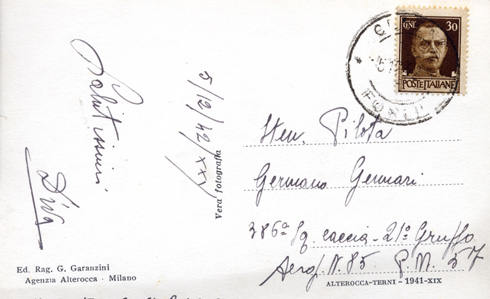 CENT. 30
POSTE ITALIANE
FORLI
Salutissimi
Diva
5/12/42/XXI
Vera fotografia
Sten. Pilota
Germano Gennari
386ª Sq. caccia - 21º Gruppo
Aerop. N. 85 P.M. 57
Ed. Rag. G. Garanzini
Agenzia Alterocca - Milano
ALTEROCCA-TERNI - 1941-XIX